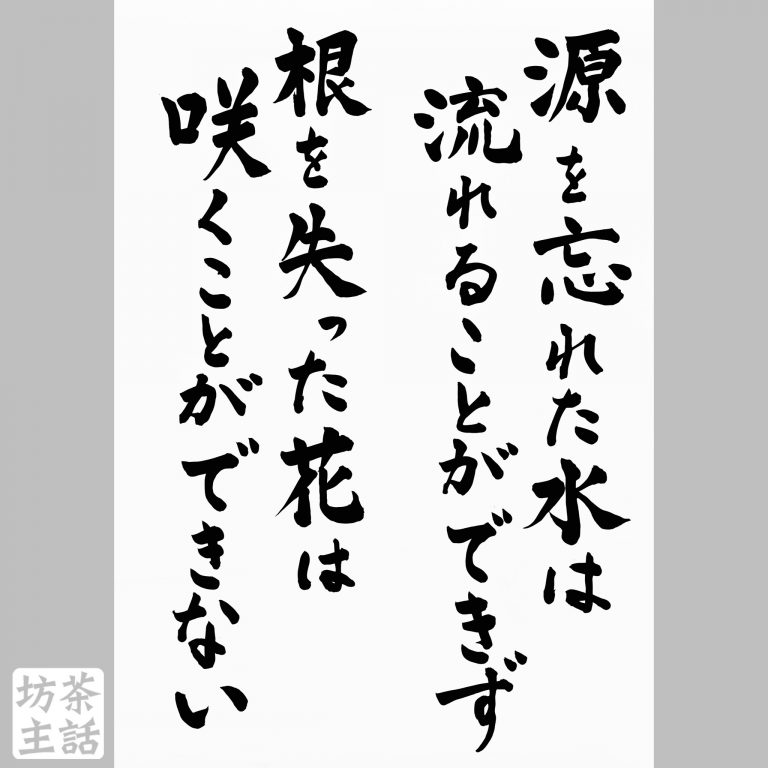 源を忘れた水は
流れることができず
根を失った花は
咲くことができない
坊主
茶話